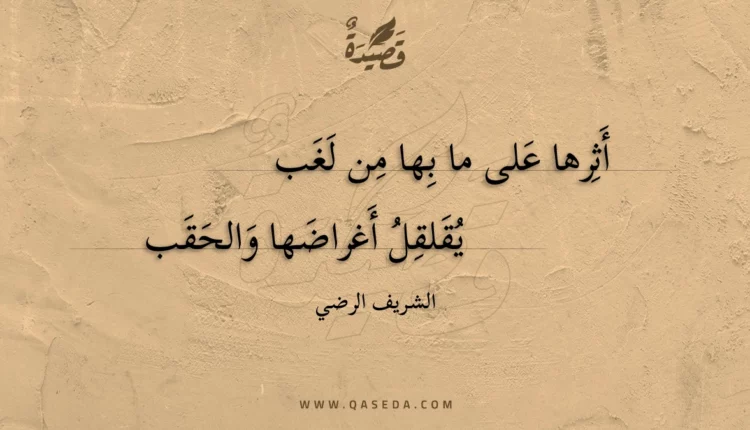 قَصِيدَةٌ
أَثِرها عَلى ما بِها مِن لَغَب
يُقَلقِلُ أَغراضَها وَالحَقَب
الشريف الرضي
WWW.QASEDA.COM